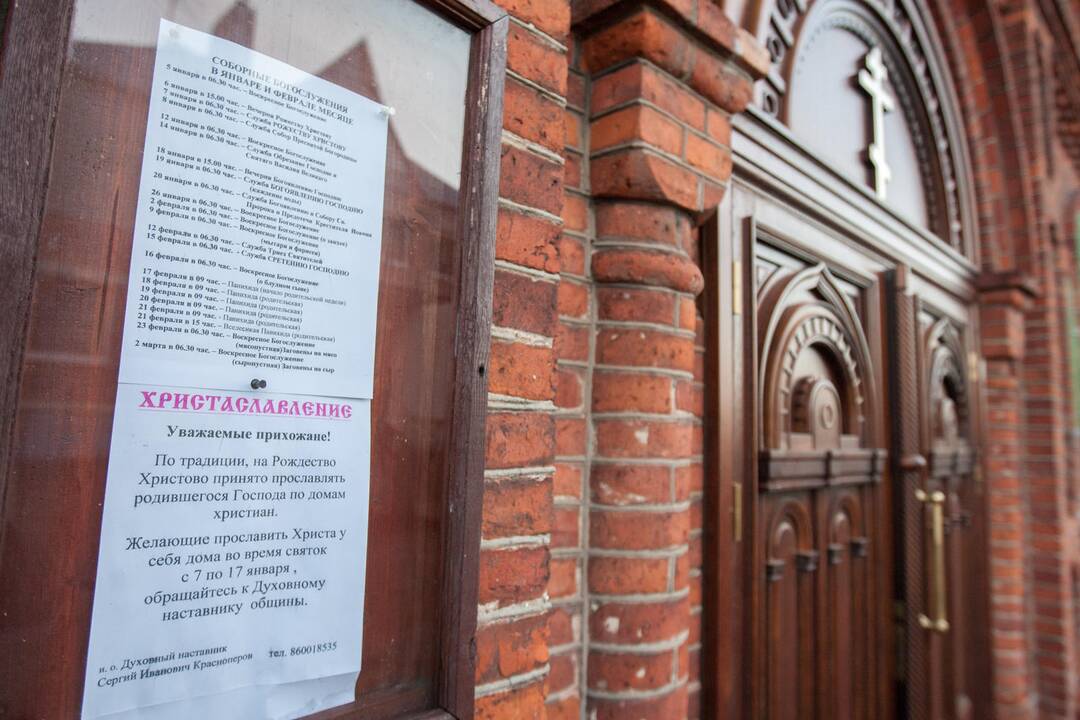 СОБОРНЫЕ БОГОСЛУЖЕНИЯ
В ЯНВАРЕ И ФЕВРАЛЕ МЕСЯЦЕ
5 января в 06.30 час. – Воскресное Богослужение
6 января в 15.00 час. – Вечерня Рожеству Христову
7 января в 06.30 час. – Служба РОЖЕСТВУ ХРИСТОВУ
8 января в 06.30 час. – Служба Собор Пресвятой Богородицы
12 января в 06.30 час. – Воскресное Богослужение
14 января в 06.30 час. – Служба Обрезению Господню и
Святаго Василия Великаго
18 января в 15.00 час. – Вечерня Богоявлению Господню
19 января в 06.30 час. – Служба БОГОЯВЛЕНИЮ ГОСПОДНЮ
(каждение воды)
20 января в 06.30 час. – Служба Богоявлению и Собору Св.
Пророка и Предотечи Крестителя Иоанна
26 января в 06.30 час. – Воскресное Богослужение
2 февраля в 06.30 час. – Воскресное Богослужение (о закхее)
9 февраля в 06.30 час. – Воскресное Богослужение
(мытаря и фарисея)
12 февраля в 06.30 час. – Служба Триех Святителей
15 февраля в 06.30 час. – Служба СРЕТЕНИЮ ГОСПОДНЮ
16 февраля в 06.30 час. – Воскресное Богослужение
(о блудном сыне)
17 февраля в 09 час. – Панихида (начало родительской недели)
18 февраля в 09 час. – Панихида (родительская)
19 февраля в 09 час. – Панихида (родительская)
20 февраля в 09 час. – Панихида (родительская)
21 февраля в 09 час. - Панихида (родительская)
21 февраля в 15 час. – Вселенская Панихида (родительская)
23 февраля в 06.30 час. – Воскресное Богослужение
(мясопустная)Заговены на мясо
2 марта в 06.30 час. – Воскресное Богослужение
(сыропустная) Заговены на сыр
ХРИСТАСЛАВЛЕНИЕ
Уважаемые прихожане!
По традиции, на Рождество
Христово принято прославлять
родившегося Господа по домам
христиан.
Желающие прославить Христа у
себя дома во время святок
с 7 по 17 января ,
обращайтесь к Духовному
наставнику общины.
и. о. Духовный наставник
Сергий Иванович Красноперов тел. 860018535